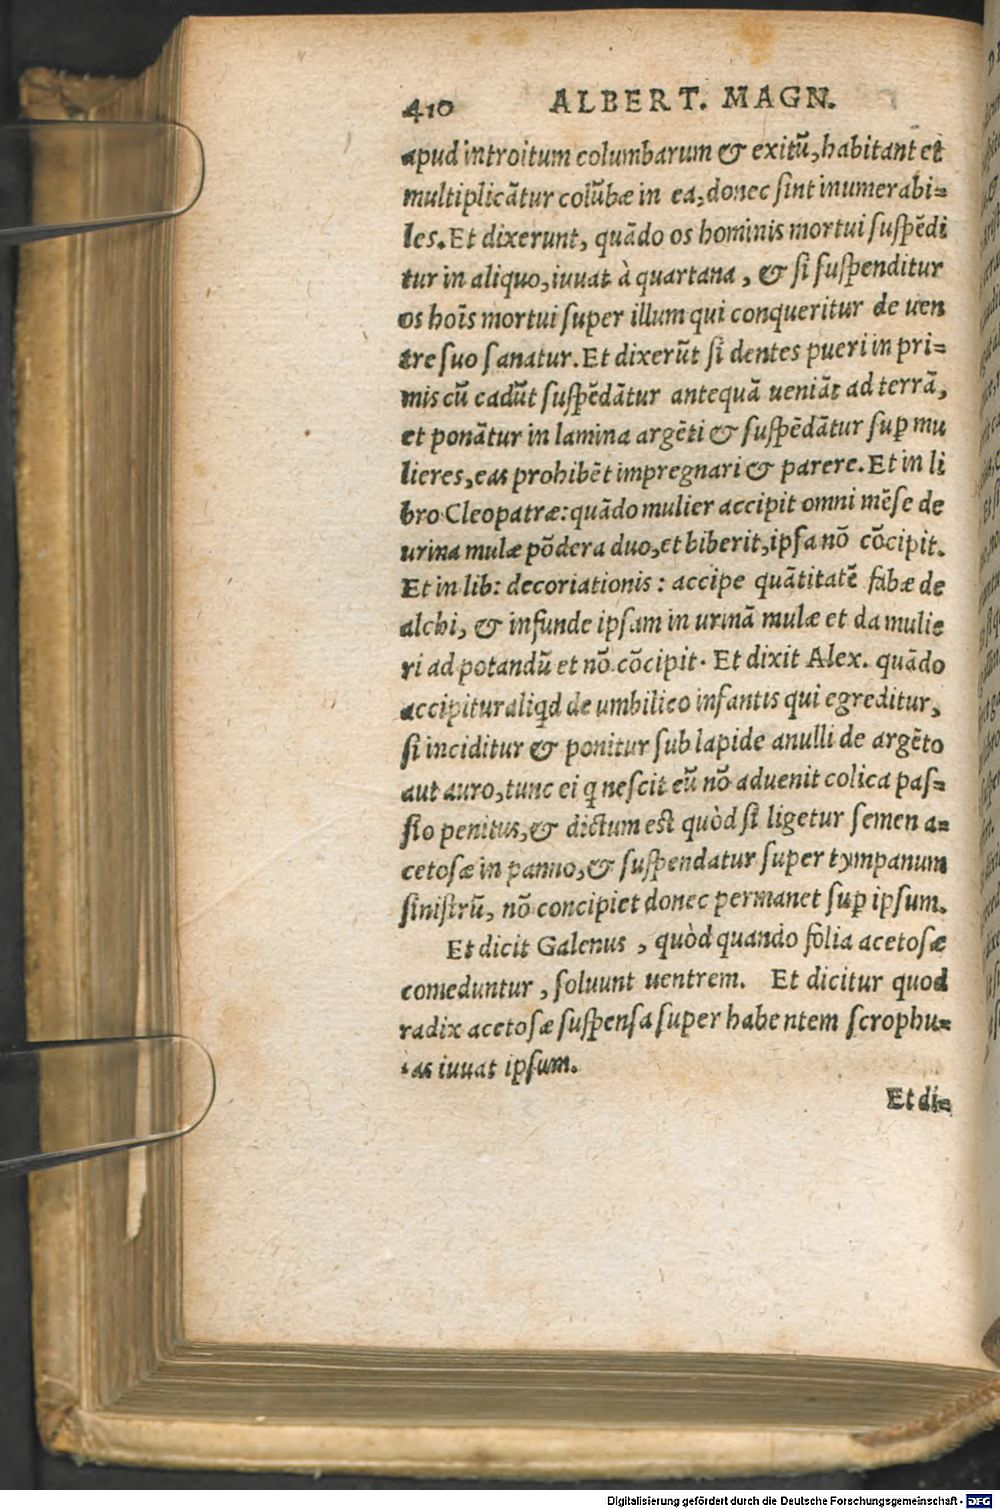 410 ALBERT. MAGN.
apud introitum columbarum & exitū, habitant et
multiplicātur colūbæ in ea, donec ſint inumerabi=
les. Et dixerunt, quādo os hominis mortui ſuſpēdi
tur in aliquo, iuuat à quartana, & ſi ſuſpenditur
os hoīs mortui ſuper illum qui conqueritur de uen
tre ſuo ſanatur. Et dixerūt ſi dentes pueri in pri=
mis cū cadūt ſuſpēdātur antequā ueniāt ad terrā,
et ponātur in lamina argēti & ſuſpēdātur suꝑ mu
lieres, eas prohibēt impregnari & parere. Et in li
bro Cleopatræ: quādo mulier accipit omni mēſe de
urina mulæ pōdera duo, et biberit, ipſa nō cōcipit.
Et in lib: decoriationis: accipe quātitatē fabæ de
alchi, & infunde ipſam in urinā mulæ et da mulie
ri ad potandū et nō cōcipit. Et dixit Alex. quādo
accipitur aliqd de umbilico infantis qui egreditur,
ſi inciditur & ponitur ſub lapide anulli de argēto
aut auro, tunc ei q neſcit eū nō aduenit colica paſ=
ſio penitus, & dictum eſt quòd ſi ligetur ſemen a=
cetoſæ in panno, & ſuſpendatur ſuper tympanum
ſiniſtrū, nō concipiet donec permanet suꝑ ipſum.
Et dicit Galenus, quòd quando folia acetoſæ
comeduntur, ſoluunt uentrem. Et dicitur quod
radix acetoſæ ſuſpenſa ſuper habentem ſcrophu=
las iuuat ipſum.
Et di=
Digitalisierung gefördert durch die Deutsche Forschungsgemeinschaft - DFG